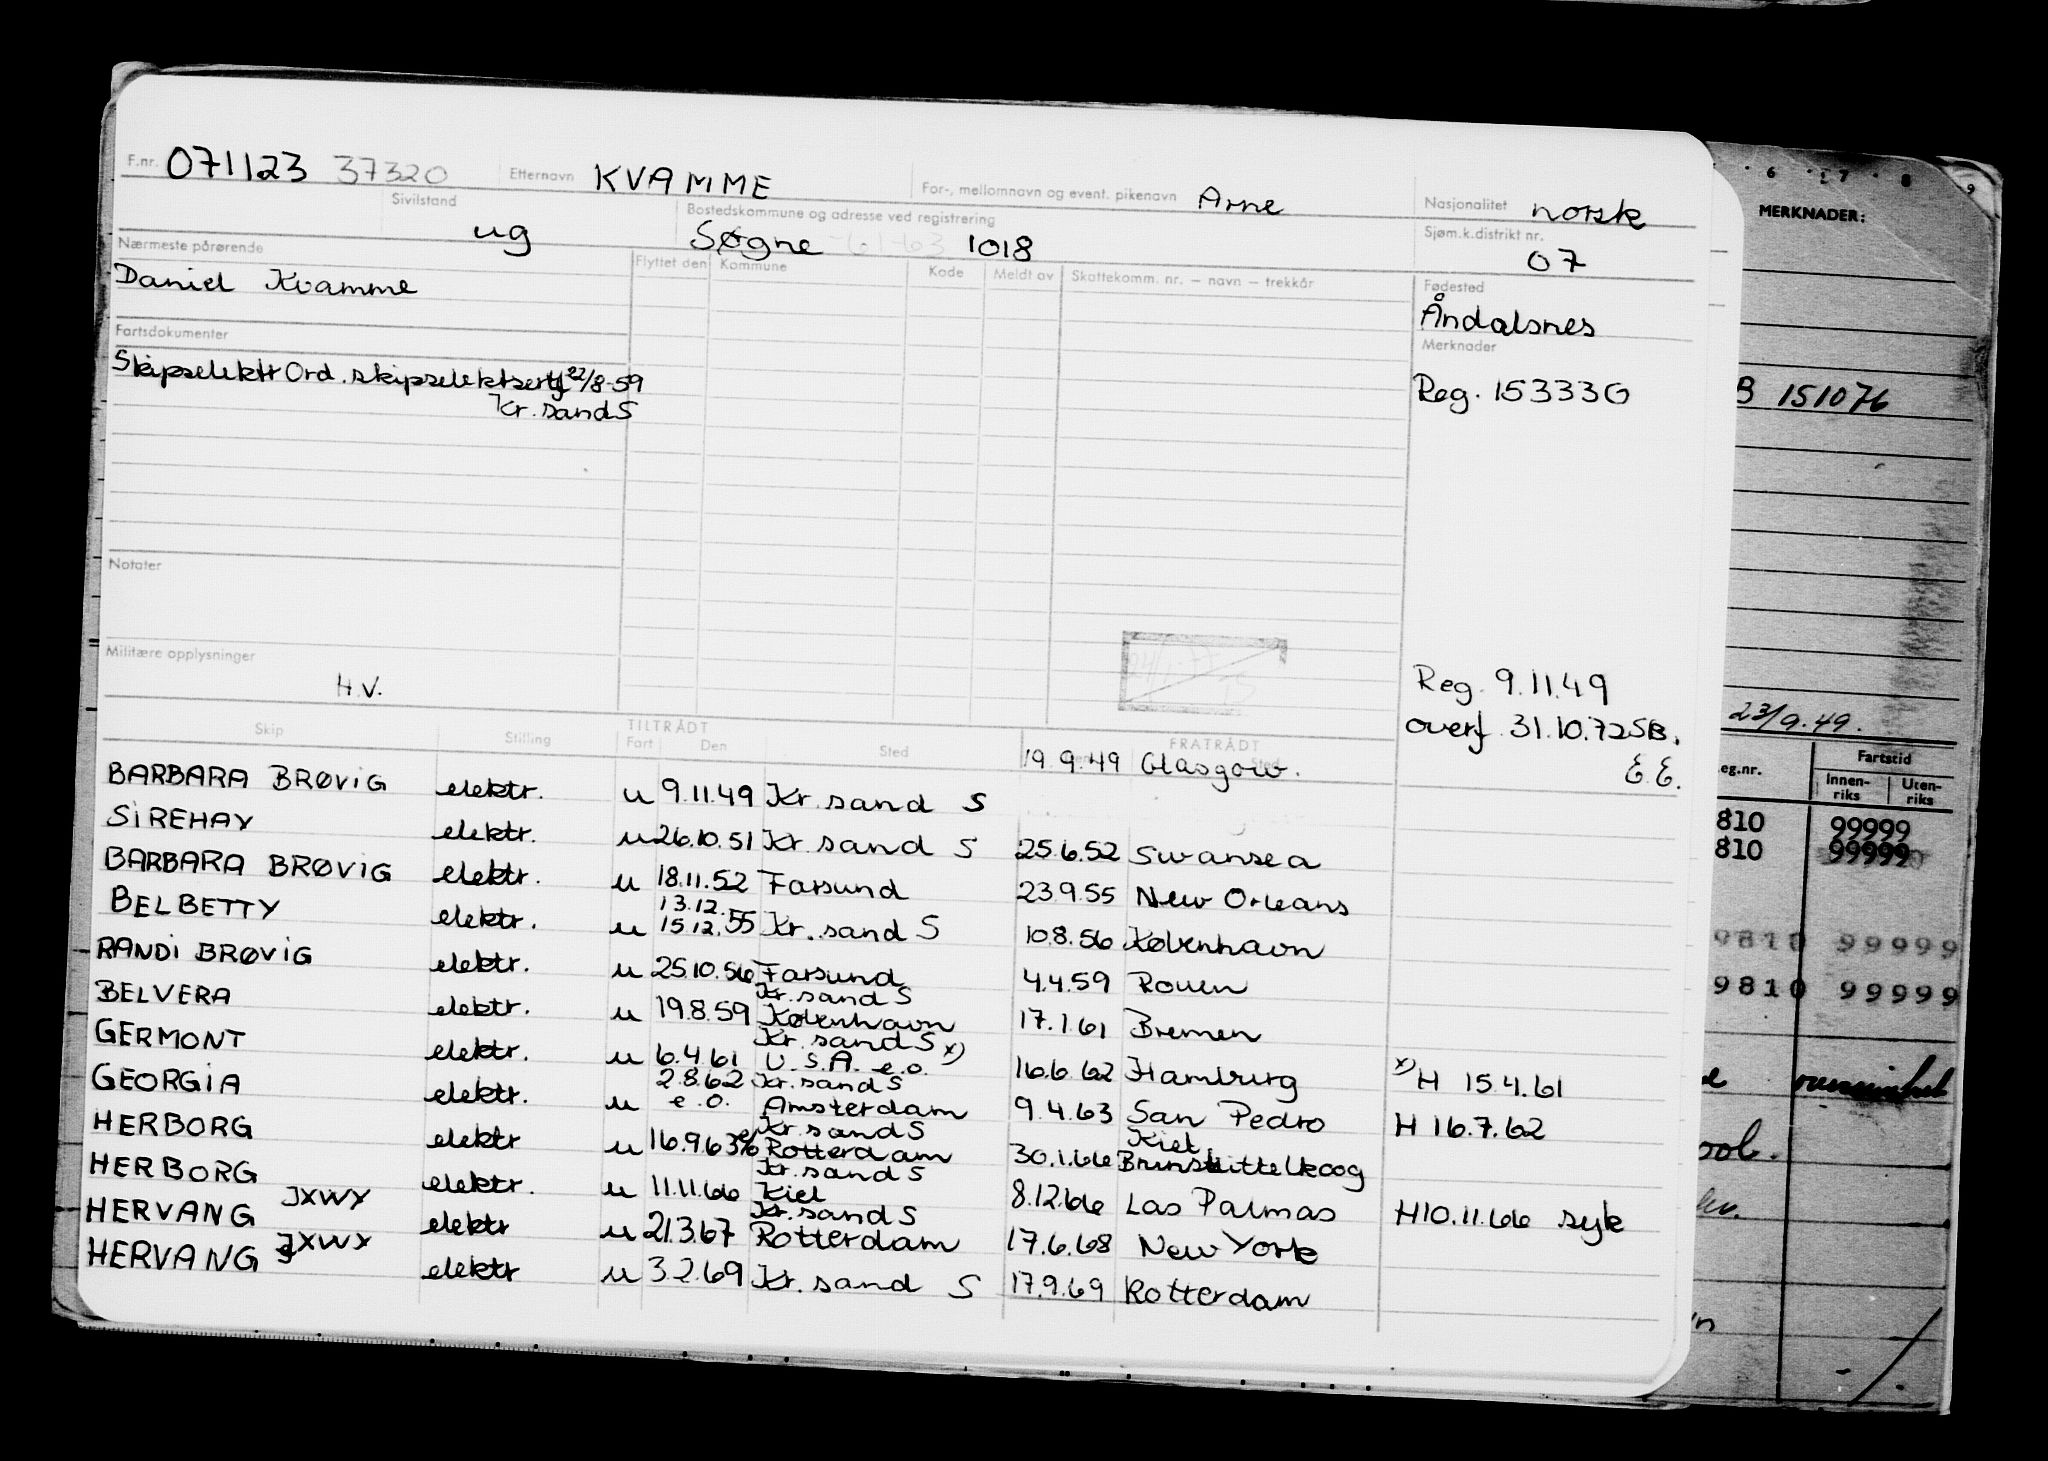 F.nr. 071123 37320 Etternavn KVAMME For-, mellomnavn og event. pikenavn Arne Nasjonalitet norsk
Sivilstand ug Bostedskommune og adresse ved registrering Søgne -61-63 1018 Sjøm.k.distrikt nr. 07
Nærmeste pårørende Flyttet den Kommune Kode Meldt av Skattekomm. nr. – navn – trekkår Fødested
Daniel Kvamme Åndalsnes
Fartsdokumenter Merknader
Skipselektr Ord. skipselektsertf 22/8-59 Reg. 153330
Kr. sand S
Notater
Militære opplysninger
H.V.
Reg. 9.11.49
overf. 31.10.72 SB.
E.E.
Skip Stilling TILTRÅDT Fart Den Sted FRATRÅDT Sted
19.9.49 Glasgow.
BARBARA BRØVIG elektr. u 9.11.49 Kr. sand S
SIREHAY elektr. u 26.10.51 Kr. sand S 25.6.52 Swansea
BARBARA BRØVIG elektr. u 18.11.52 Farsund 23.9.55 New Orleans
13.12.
BELBETTY elektr. u 15.12.55 Kr. sand S 10.8.56 København
RANDI BRØVIG elektr. u 25.10.56 Farsund 4.4.59 Rouen
Kr. sand S
BELVERA elektr. u 19.8.59 København 17.1.61 Bremen
Kr. sand S x)
GERMONT elektr. u 6.4.61 U.S.A. e.o. 16.6.62 Hamburg x) H 15.4.61
2.8.62 Kr. sand S
GEORGIA elektr. u e.o. Amsterdam 9.4.63 San Pedro H 16.7.62
Kr. sand S Kiel
HERBORG elektr u 16.9.63 Rotterdam 30.1.66 Brunsbüttelkoog
Kr. sand S
HERBORG elektr. u 11.11.66 Kiel 8.12.66 Las Palmas H10.11.66 syk
Kr. sand S
HERVANG JXWY elektr u 21.3.67 Rotterdam 17.6.68 New York
HERVANG JXWY elektr u 3.2.69 Kr. sand S 17.9.69 Rotterdam
6 7 8 9
MERKNADER:
B 151076
23/9.49.
eg.nr. Fartstid
Innen-riks Uten-riks
810 99999
810 99999
9810 99999
9810 99999